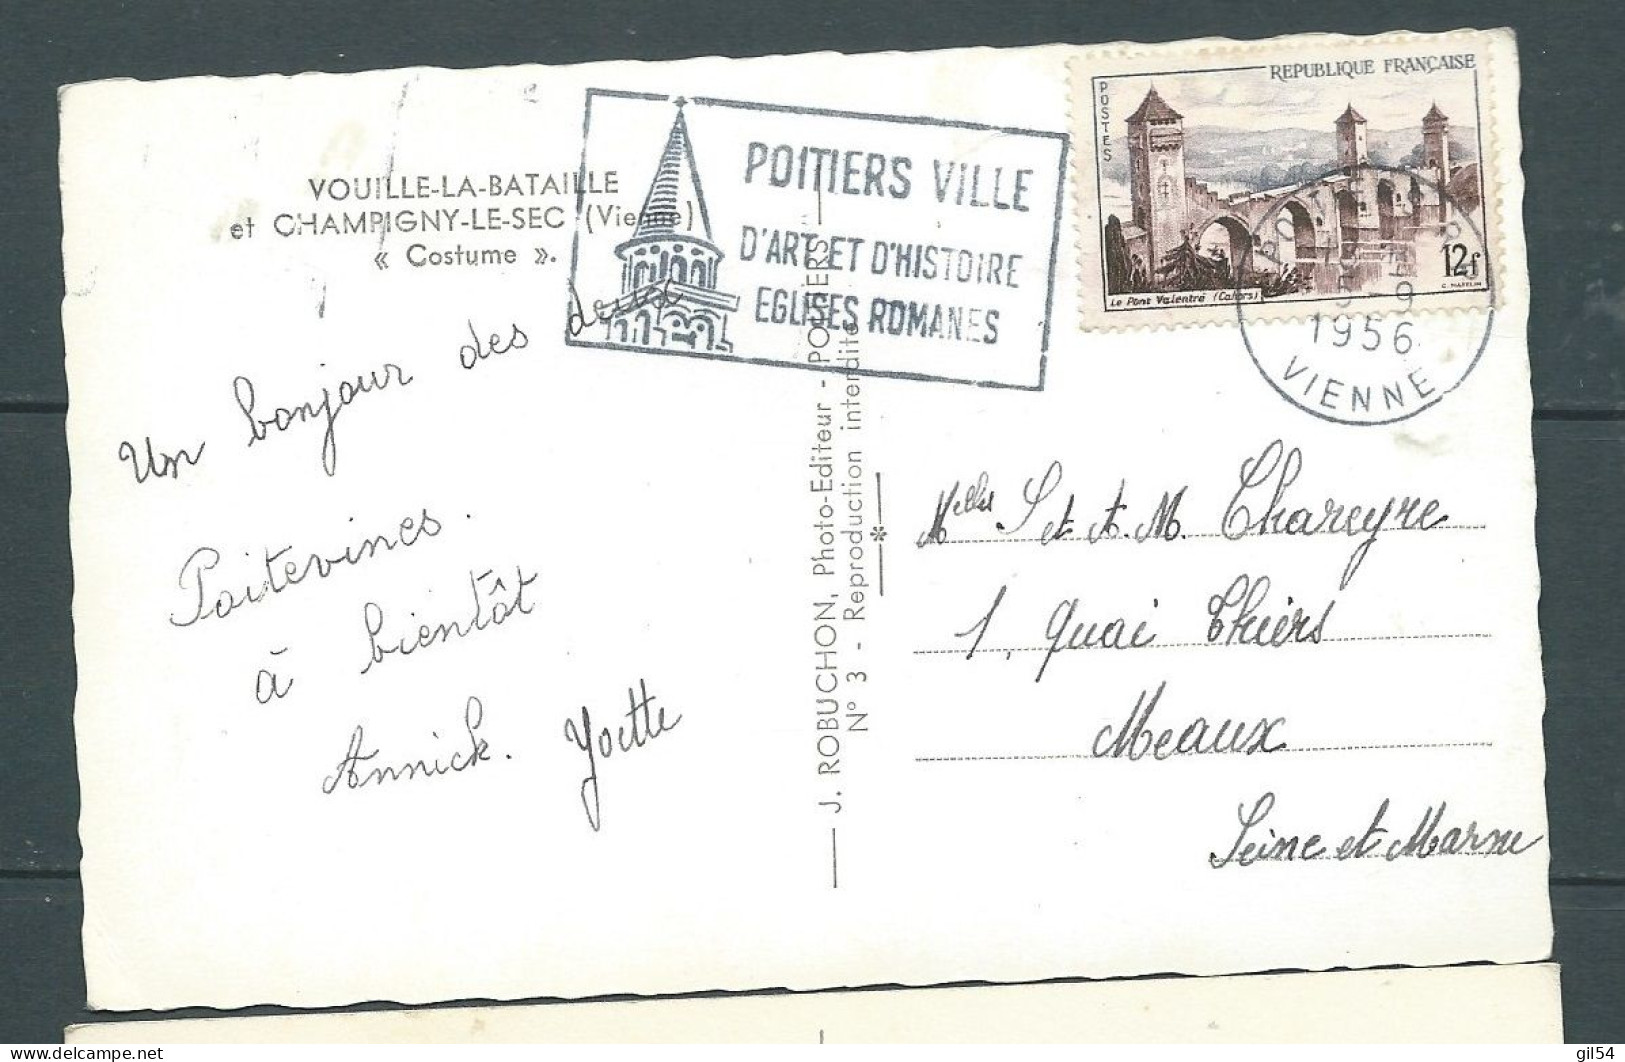 VOUILLE-LA-BATAILLE
et CHAMPIGNY-LE-SEC (Vienne)
« Costume ».
POITIERS VILLE
D'ART ET D'HISTOIRE
EGLISES ROMANES
REPUBLIQUE FRANÇAISE
POSTES
12f
Le Pont Valentré (Cahors)
9
1956
VIENNE
Un bonjour des deux
Poitevines.
à bientôt
Annick. Yvette
J. ROBUCHON, Photo-Editeur - POITIERS
N° 3 - Reproduction interdite
*
Melles S et A.M. Chareyre
1, Quai Thiers
Meaux
Seine et Marne
delcampe.net
gil54